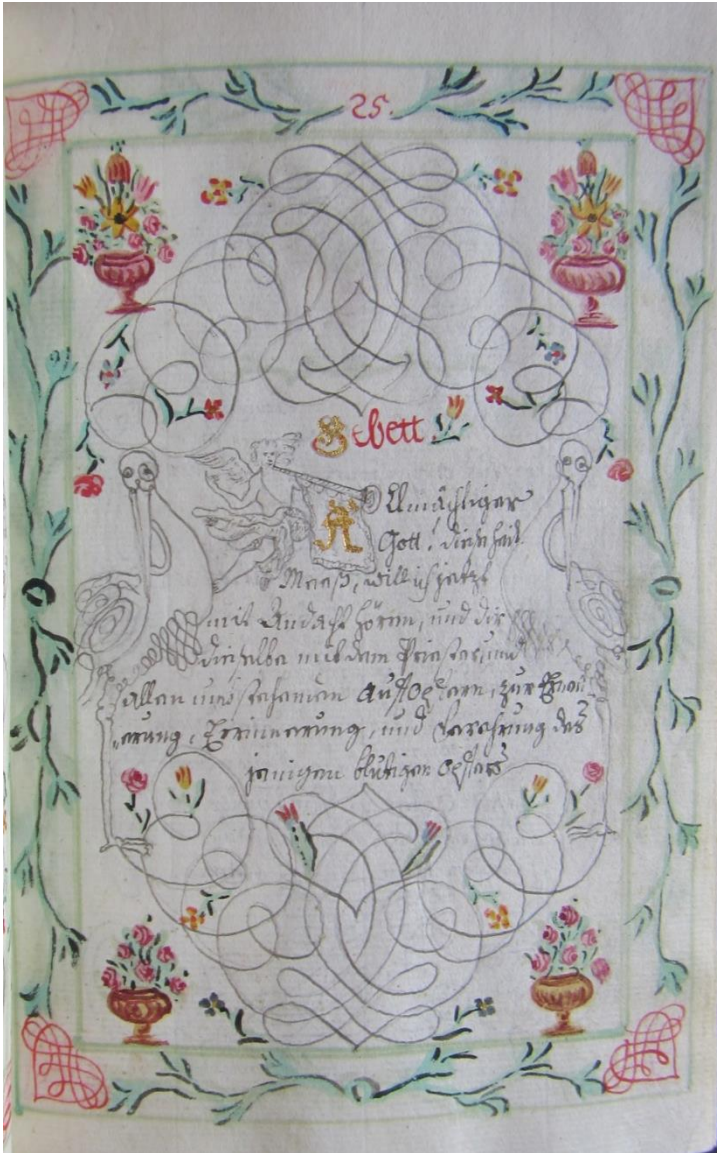 25.
Gebett
Allmächtiger
Gott! diese heil.
Meeß, will ich jetzt
mit Andacht hören, und dir
dieselbe mit dem Priester, und
allen umbstehenden aufopfern, zur Erneü-
erung, Erinnerung, und Verehrung des
jenigen blutigen opfers